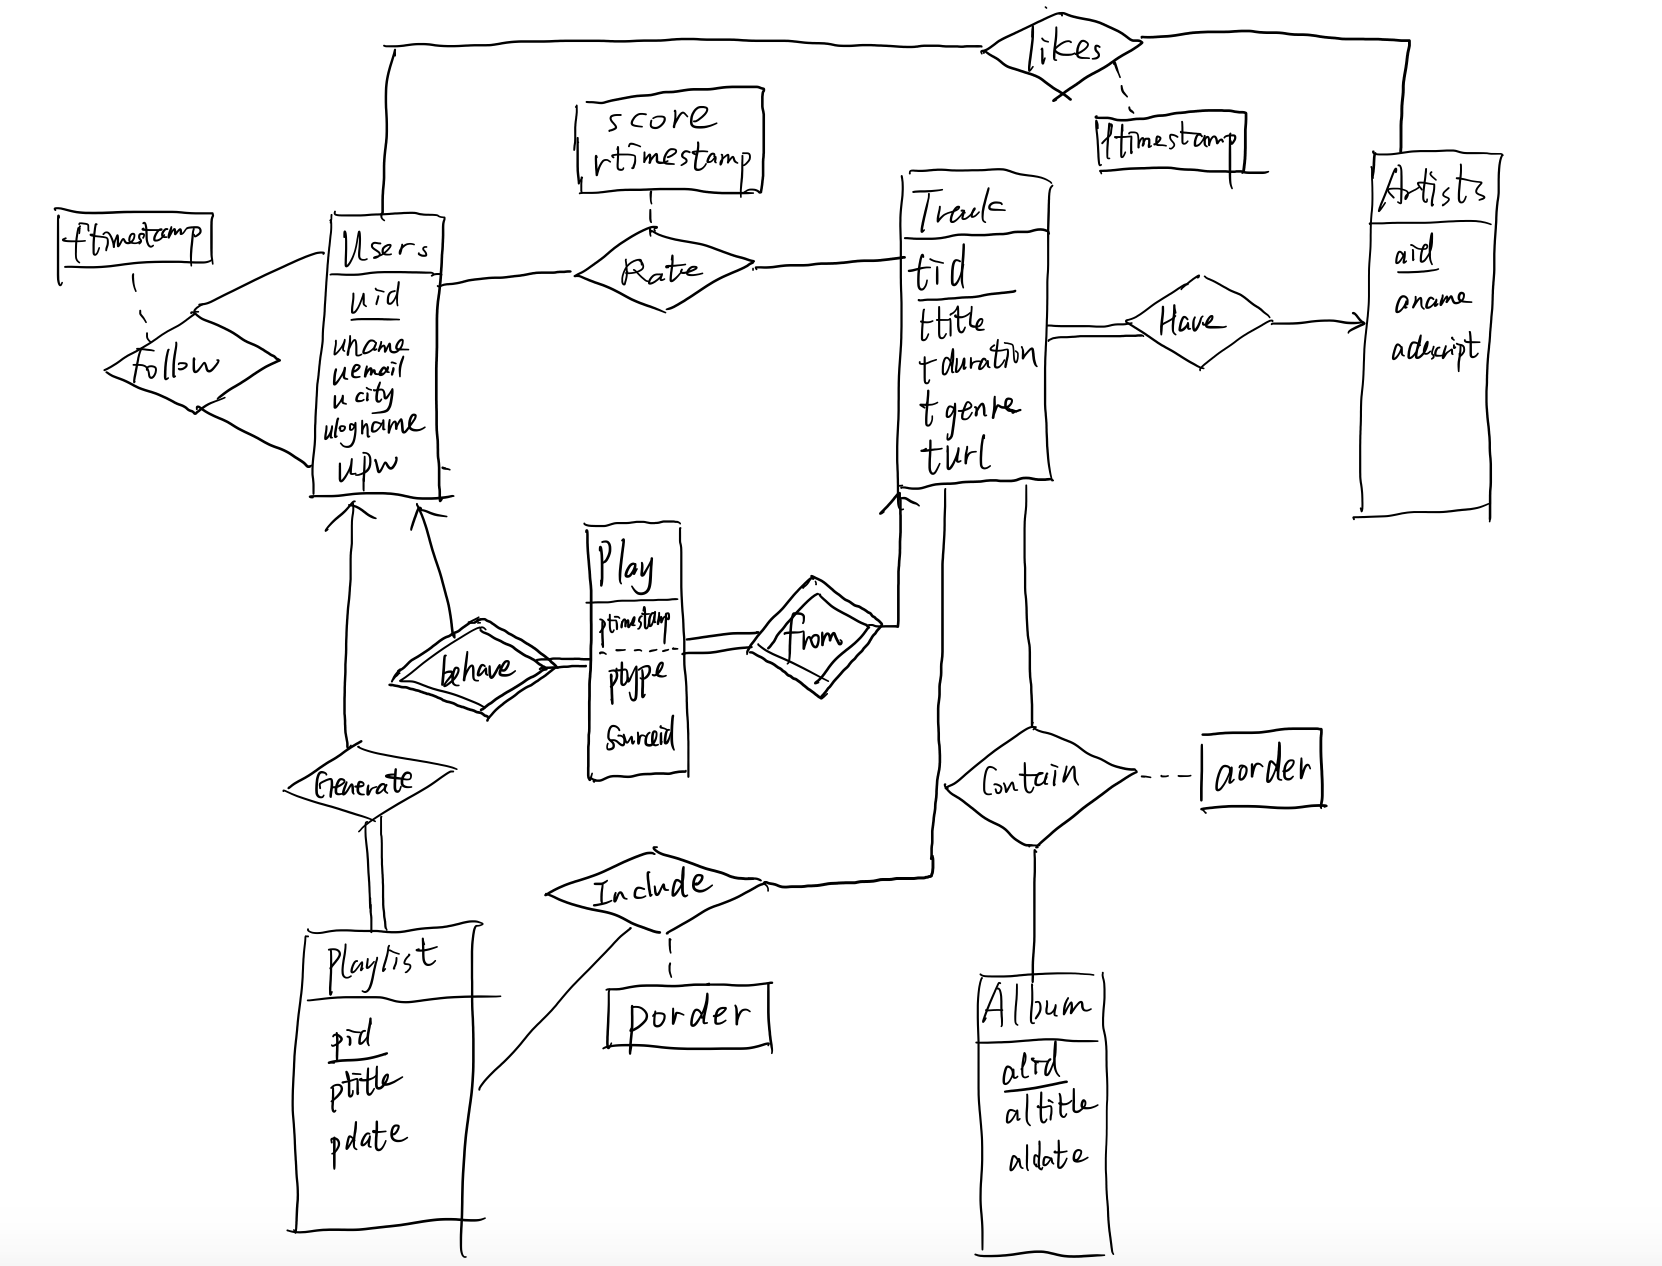 likes
ltimestamp
score
rtimestamp
Rate
ftimestamp
Follow
Users
uid
uname
uemail
ucity
ulogname
upw
Track
tid
ttitle
tduration
tgenre
turl
Have
Artists
aid
aname
adescript
behave
Play
ptimestamp
ptype
sourceid
from
Generate
Include
porder
Contain
aorder
Playlist
pid
ptitle
pdate
Album
alid
altitle
aldate